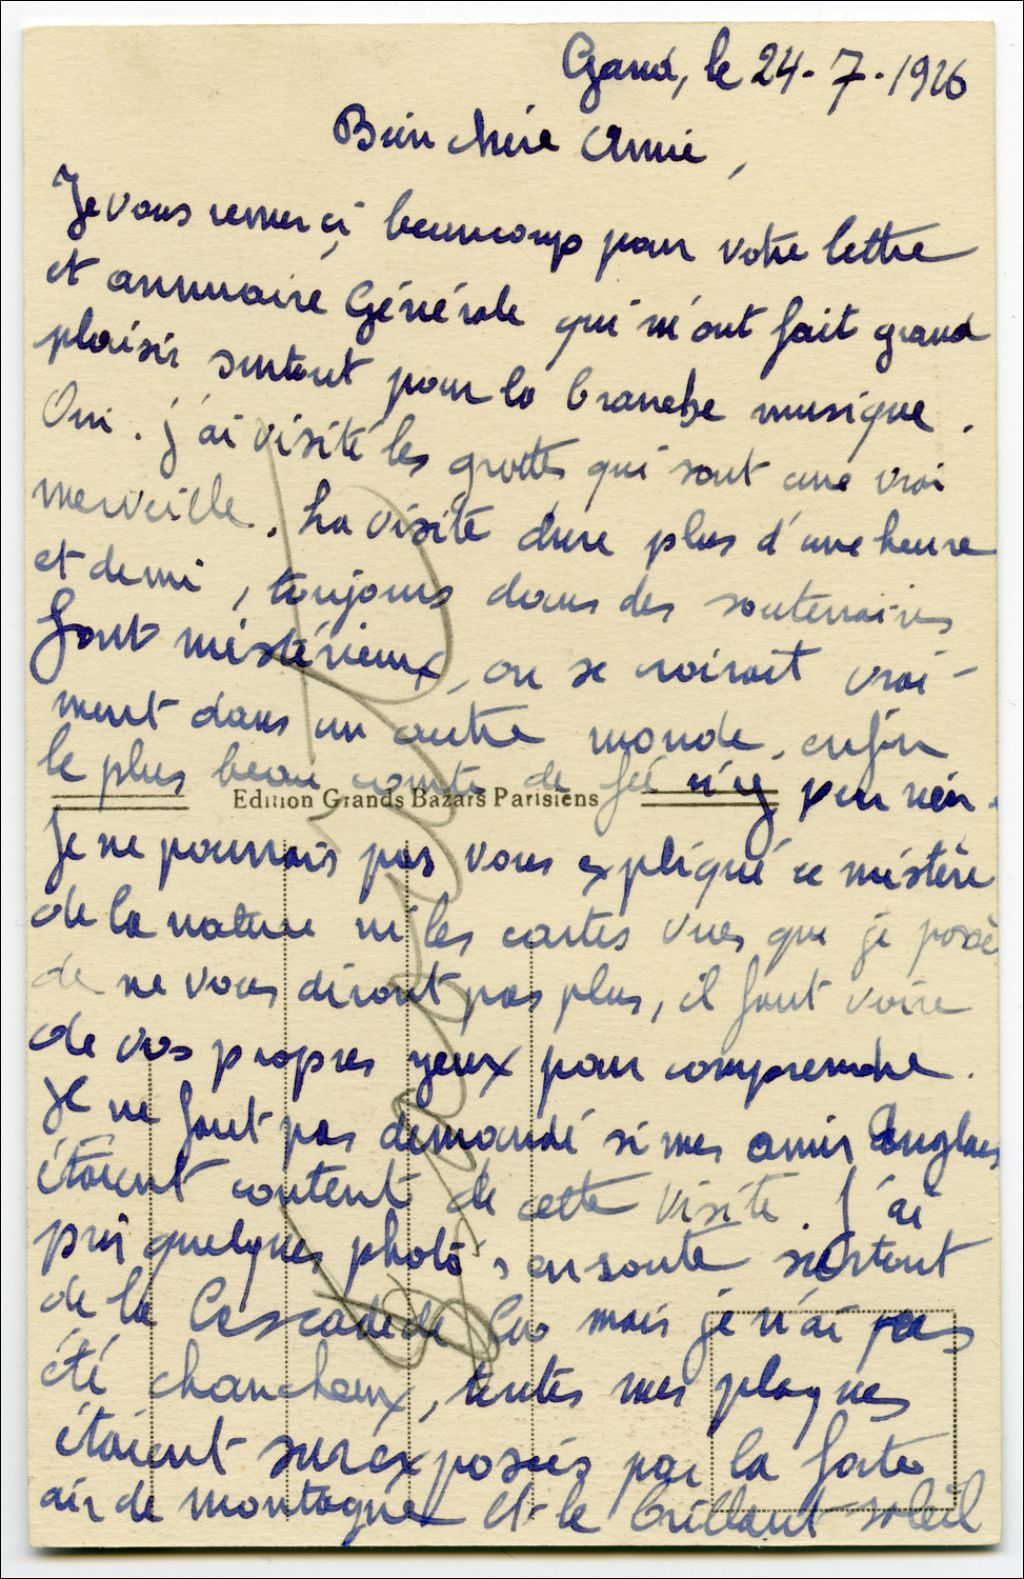 Gand, le 24-7-1926
Bien chére Amie,
Je vous remerci beaucoup pour votre lettre
et annuaire Générale qui m'ont fait grand
plaisir surtout pour la branche musique.
Oui. j'ai visité les grottes qui sont une vrai
merveille. La visite dure plus d'une heure
et demi, toujours dans des souterrains
fort mistérieux, on se croirait vrai-
ment dans un autre monde, enfin
le plus beau conte de fée n'y peu rien.
Edition Grands Bazars Parisiens
Je ne pourrais pas vous expliqué ce mistère
de la nature ni les cartes vues que je possè
de ne vous diront pas plus, il faut voire
de vos propres yeux pour comprendre.
Il ne faut pas demandé si mes amis Anglais
étaient content de cette visite. J'ai
pris quelques photo's ensuite surtout
de la Cascade de Coo mais je n'ai pas
été chancheux, toutes mes plaques
étaient surexposées par la forte
air de montagne et le brillant soleil